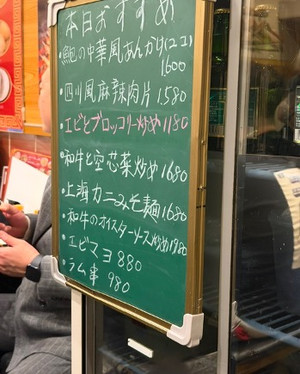 本日おすすめ
・鮑の中華風あんかけ(2コ)
1600
・四川風麻辣肉片 1.580
・エビとブロッコリー炒め 1180
・和牛と空芯菜炒め 1680
・上海カニみそ麺 1.680
・和牛のオイスターソース炒め 1780
・エビマヨ 880
・ラム串 980